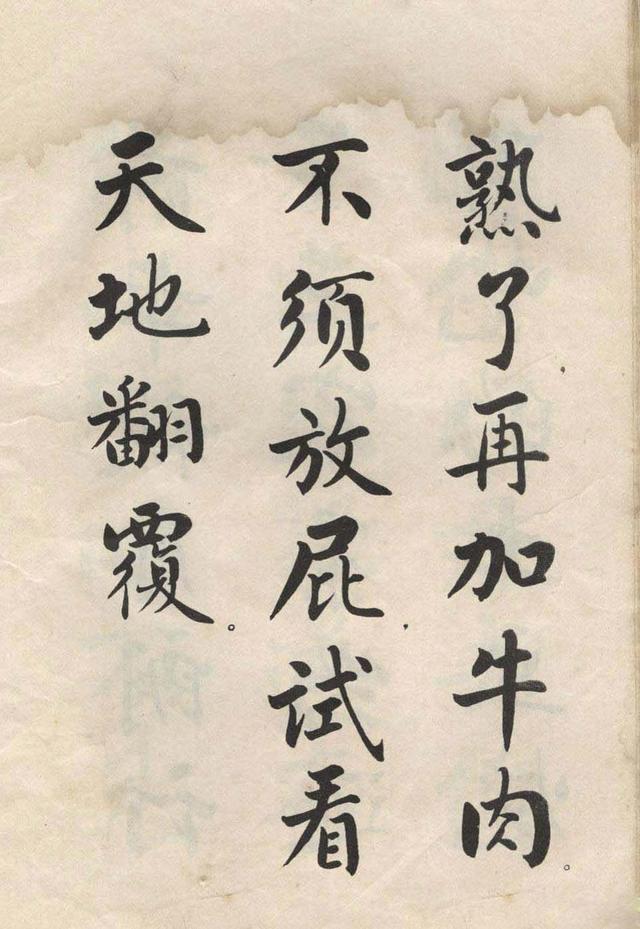 熟了，再加牛肉。
不须放屁，试看
天地翻覆。